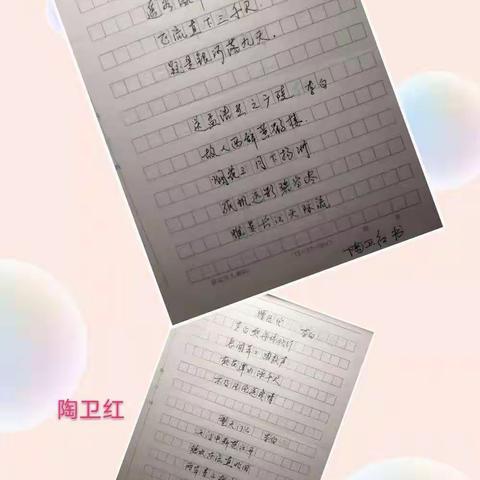 飞流直下三千尺,
疑是银河落九天。
送孟浩然之广陵 李白
故人西辞黄鹤楼
烟花三月下扬州
孤帆远影碧空尽
唯见长江天际流
陶卫红书
赠汪伦 李白
李白乘舟将欲行
忽闻岸上踏歌声
桃花潭水深千尺
不及汪伦送我情
望天门山 李白
天门中断楚江开
碧水东流至此回
两岸青山
陶卫红